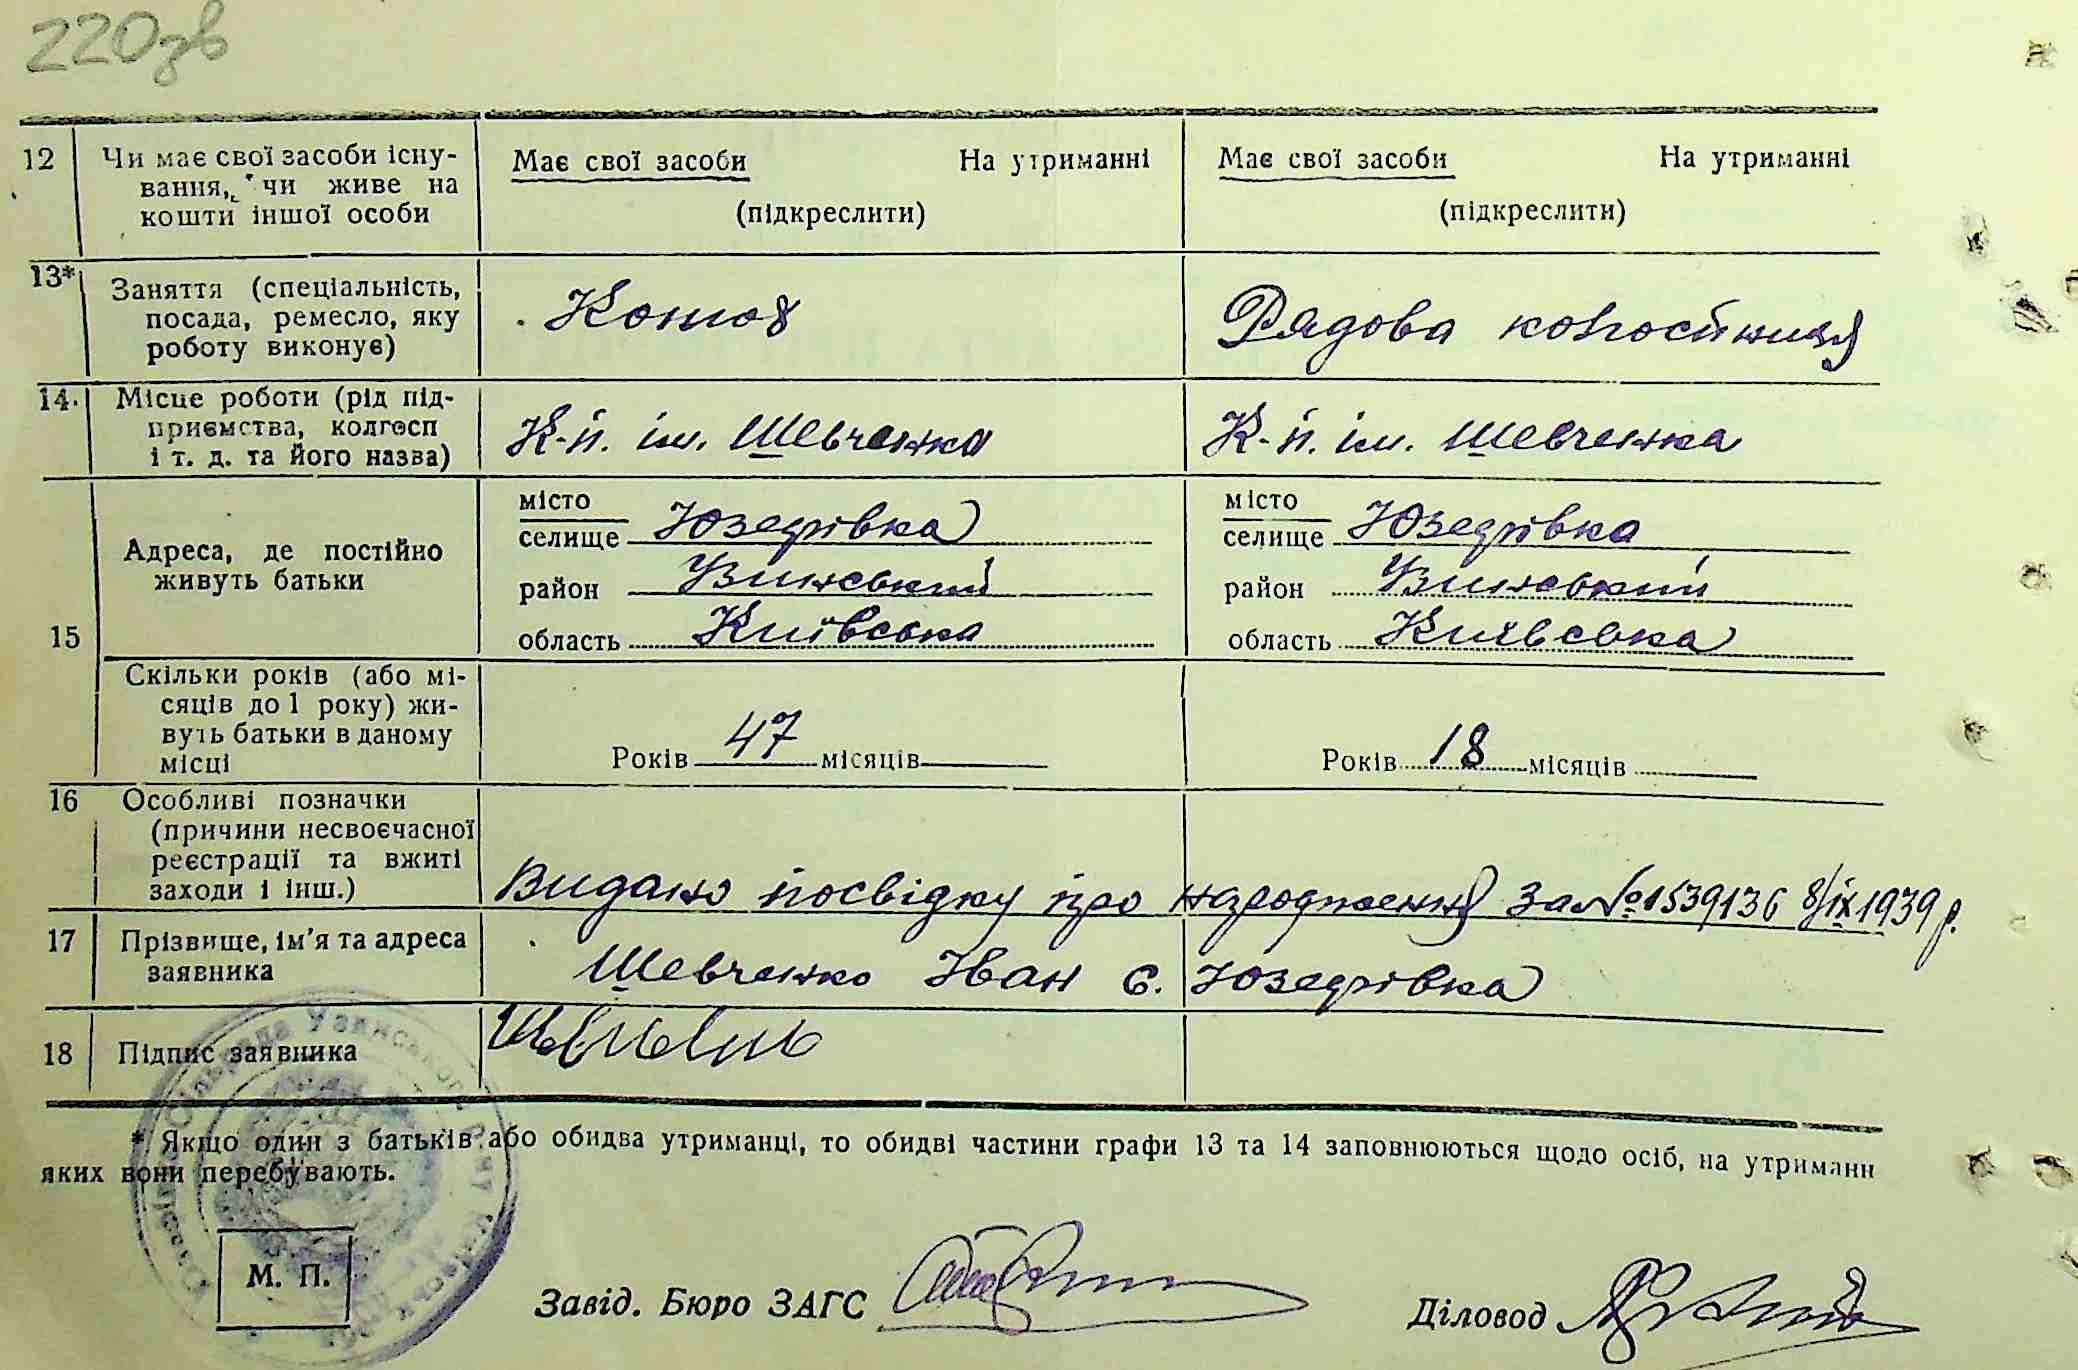 220зв
12 Чи має свої засоби існу-
вання, чи живе на
кошти іншої особи
Має свої засоби На утриманні
(підкреслити)
Має свої засоби На утриманні
(підкреслити)
13* Заняття (спеціальність,
посада, ремесло, яку
роботу виконує)
Конюх
Рядова
14. Місце роботи (рід під-
приємства, колгосп
і т. д. та його назва)
К-п. ім. Шевченка
К-п. ім. Шевченка
15 Адреса, де постійно
живуть батьки
місто
селище Юзефівка
район Узинський
область Київська
місто
селище Юзефівка
район Узинський
область Київська
Скільки років (або мі-
сяців до 1 року) жи-
вуть батьки в даному
місці
Років 47 місяців
Років 18 місяців
16 Особливі позначки
(причини несвоєчасної
реєстрації та вжиті
заходи і інш.)
Видано посвідку про народження за № 1539136 8/ІХ 1939 р.
17 Прізвище, ім'я та адреса
заявника
Шевченко Іван с. Юзефівка
18 Підпис заявника
* Якщо один з батьків або обидва утриманці, то обидві частини графи 13 та 14 заповнюються щодо осіб, на утриманн
яких вони перебувають.
М. П.
Завід. Бюро ЗАГС
Діловод